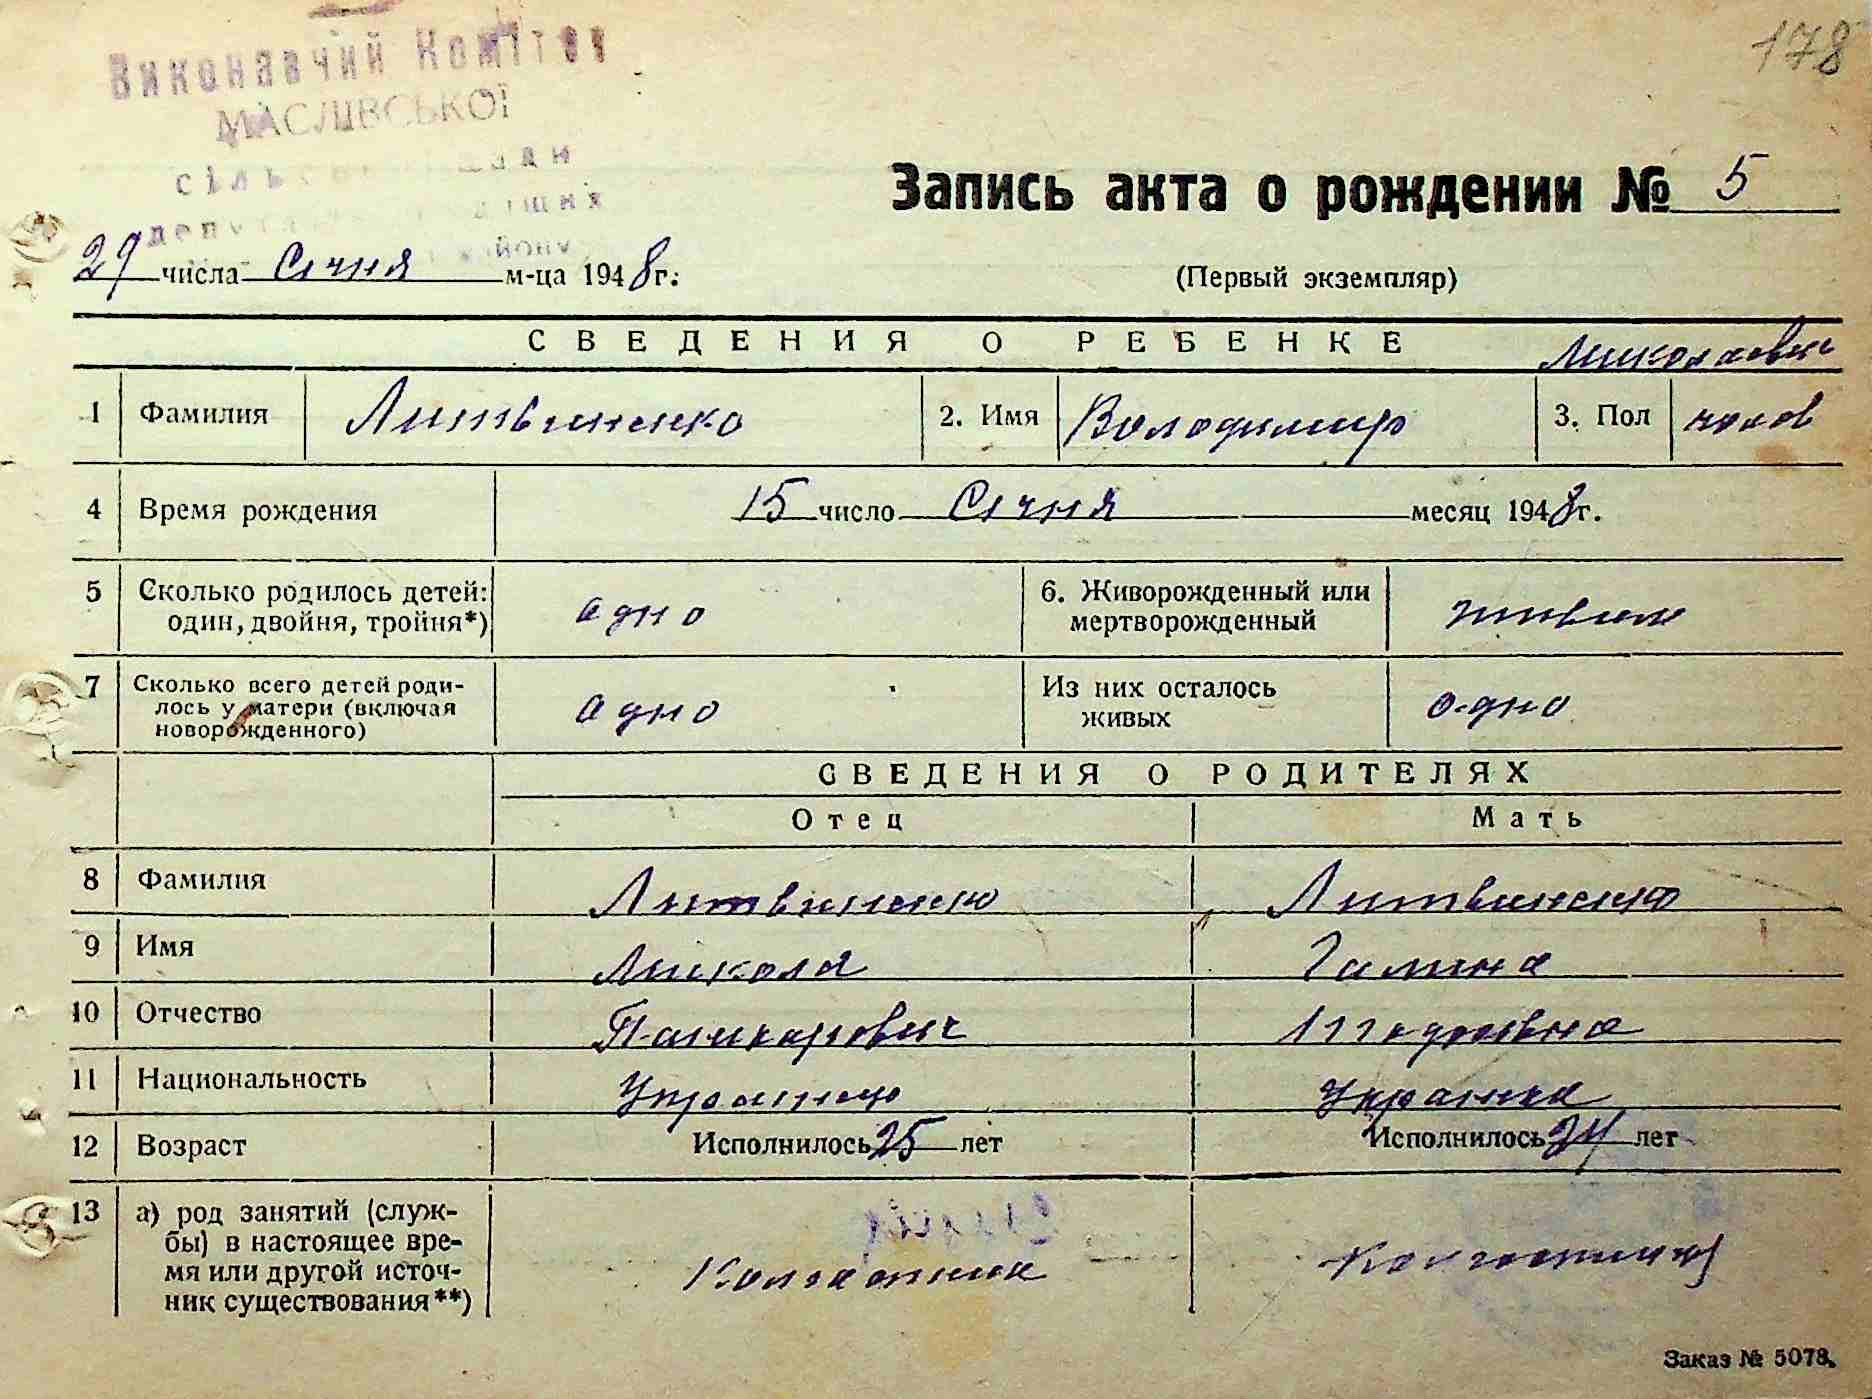 178
Виконавчий Комітет
МАСЛІВСЬКОЇ
Запись акта о рождении № 5
29 числа Січня м-ца 1948г.
(Первый экземпляр)
СВЕДЕНИЯ О РЕБЕНКЕ
Миколаевич
1 Фамилия Литвиненко 2. Имя Володимир 3. Пол чолов
4 Время рождения 15 число Січня месяц 1948г.
5 Сколько родилось детей: один, двойня, тройня*) одно 6. Живорожденный или мертворожденный живим
7 Сколько всего детей роди-
лось у матери (включая
новорожденного) одно Из них осталось живых одно
СВЕДЕНИЯ О РОДИТЕЛЯХ
Отец Мать
8 Фамилия Литвиненко Литвиненко
9 Имя Микола Галина
10 Отчество
11 Национальность Українець Українка
12 Возраст Исполнилось 25 лет Исполнилось 24 лет
13 а) род занятий (служ-
бы) в настоящее вре-
мя или другой источ-
ник существования**) Колгоспник Колгоспниця
Заказ № 5078.